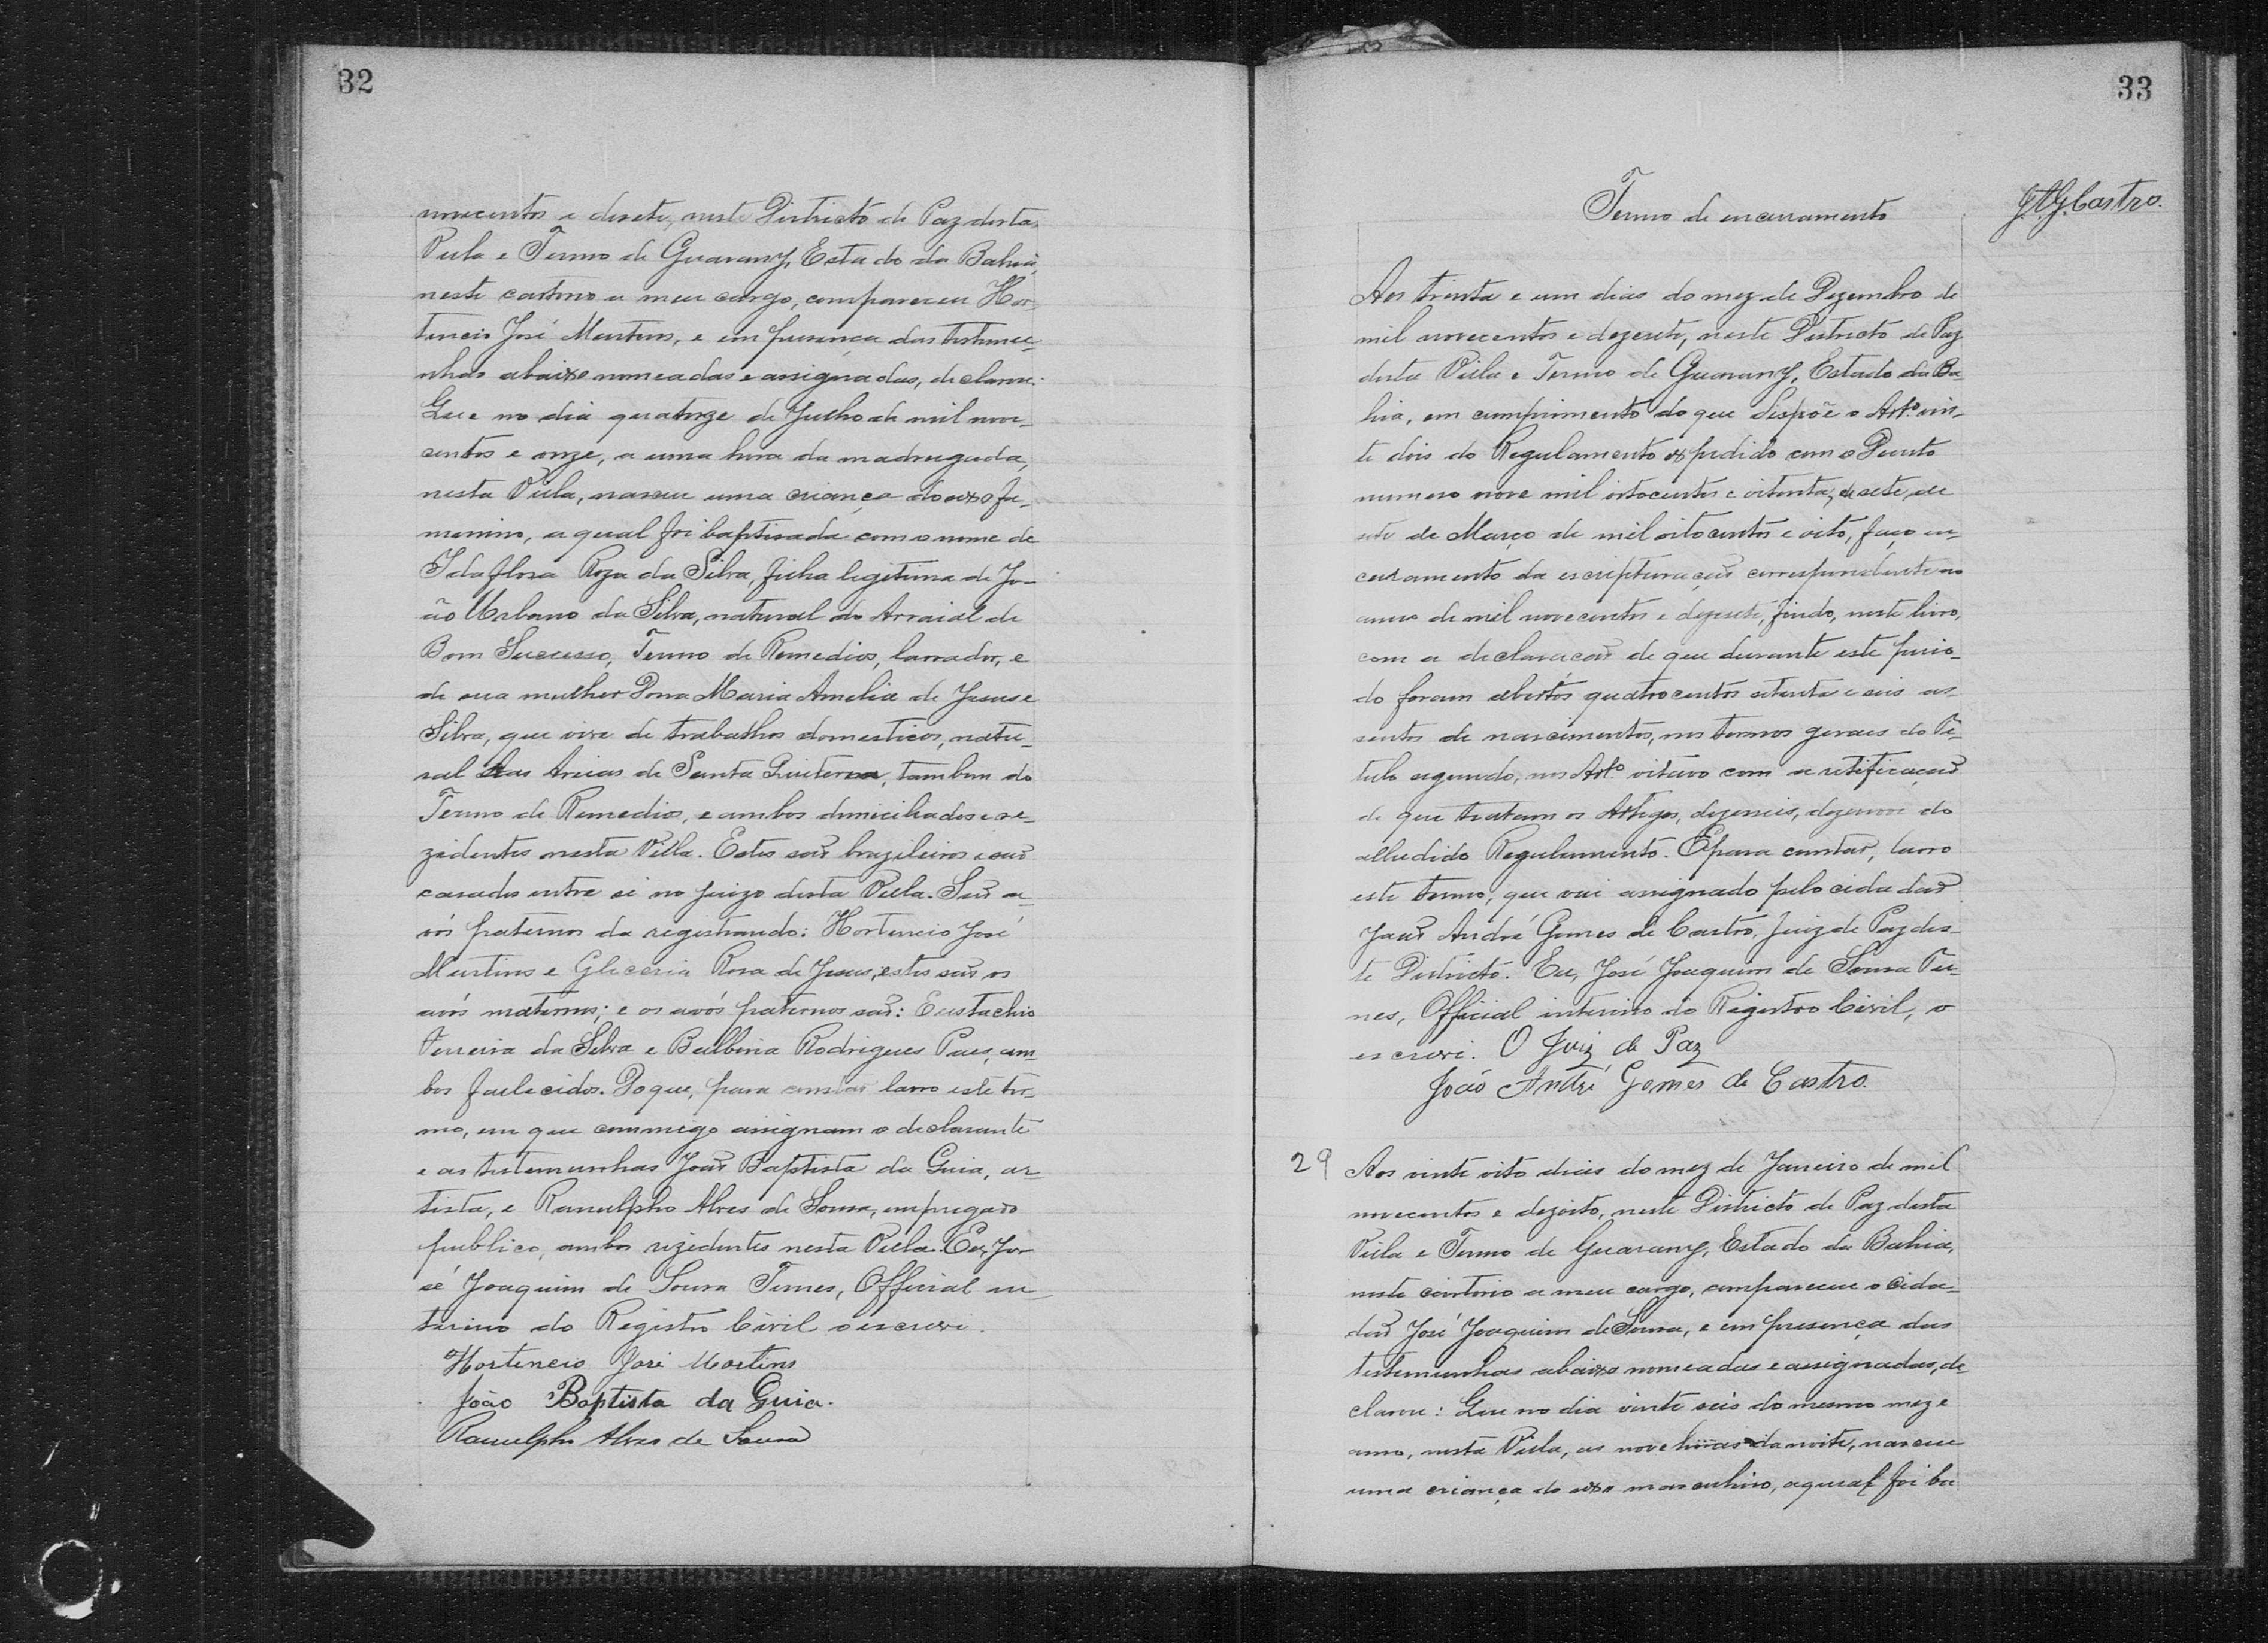 32
novecentos e desete, neste Districto de Paz desta
Villa e Termo de Guarany, Estado da Bahia,
neste cartorio a meu cargo, compareceu Hor-
tencio José Martins, e em presença das testemu-
nhas abaixo nomeadas e assignadas, declarou:
Que no dia quatorze de Julho de mil nove-
centos e onze, a uma hora da madrugada,
nesta Villa, nasceu uma criança do sexo fe-
menino, a qual foi baptisada com o nome de
Idaflora Roza da Silva, filha legitima de Jo-
ão Urbano da Silva, natural do Arraial de
Bom Successo, Termo de Remedios, lavrador, e
de sua mulher Dona Maria Amelia de Jesus e
Silva, que vive de trabalhos domesticos, natu-
ral das Areias de Santa Quiteria, tambem do
Termo de Remedios, e ambos domiciliados e re-
zidentes nesta Villa. Estes saõ brazileiros e saõ
casados entre si no juizo desta Villa. Saõ a-
vós paternos da registrando: Hortencio José
Martins e Gliceria Rosa de Jesus, estes saõ os
avós maternos; e os avós paternos saõ: Eustachio
Ferreira da Silva e Balbina Rodrigues Paes, am-
bos fallecidos. Do que, para constar lavro este ter-
mo, em que commigo assignam o declarante
e as testemunhas Joaõ Baptista da Guia, ar-
tista, e Ranulpho Alves de Sousa, empregado
publico, ambos rezidentes nesta Villa. Eu, Jo-
sé Joaquim de Sousa Tunes, Official in-
terino do Registro Civil o escrevi.
Hortencio José Martins
João Baptista da Guia.
Ranulpho Alves de Sousa
33
J.A.G. Castro.
Termo de encerramento
Aos trinta e um dias do mez de Dezembro de
mil novecentos e dezesete, neste Districto de Paz
desta Villa e Termo de Guarany, Estado da Ba-
hia, em cumprimento do que dispoẽ o Artº. vin-
te dois do Regulamento expedido com o Decreto
numero nove mil oitocentos e oitenta, e sete, de
sete de Março de mil oitocentos e oito, faço en-
cerramento da escripturaçaõ correspondente ao
anno de mil novecentos e dezesete, findo, neste livro,
com a declaracaõ de que durante este perio-
do foram abertos quatrocentos setenta e seis as-
sentos de nascimentos, nos termos geraes do Ti-
tulo segundo, nos Artº. oitavo com a retificaçaõ
de que tratam os Artigos, dezeseis, dezenove do
alludido Regulamento. E para constar, lavro
este termo, que vai assignado pelo cidadaõ
Joaõ André Gomes de Castro, Juiz de Paz des-
te Districto. Eu, José Joaquim de Sousa Tu-
nes, Official interino do Registro Civil, o
escrevi. O Juiz de Paz
João André Gomes de Castro.
29 Aos vinte oito dias do mez de Janeiro de mil
novecentos e dezoito, neste Districto de Paz desta
Villa e Termo de Guarany, Estado da Bahia,
neste cartorio a meu cargo, compareceu o cida-
daõ José Joaquim de Sousa, e em presença das
testemunhas abaixo nomeadas e assignadas, de-
clarou: Que no dia vinte seis do mesmo mez e
anno, nesta Villa, as nove horas da noite, nasceu
uma criança do sexo masculino, a qual foi ba